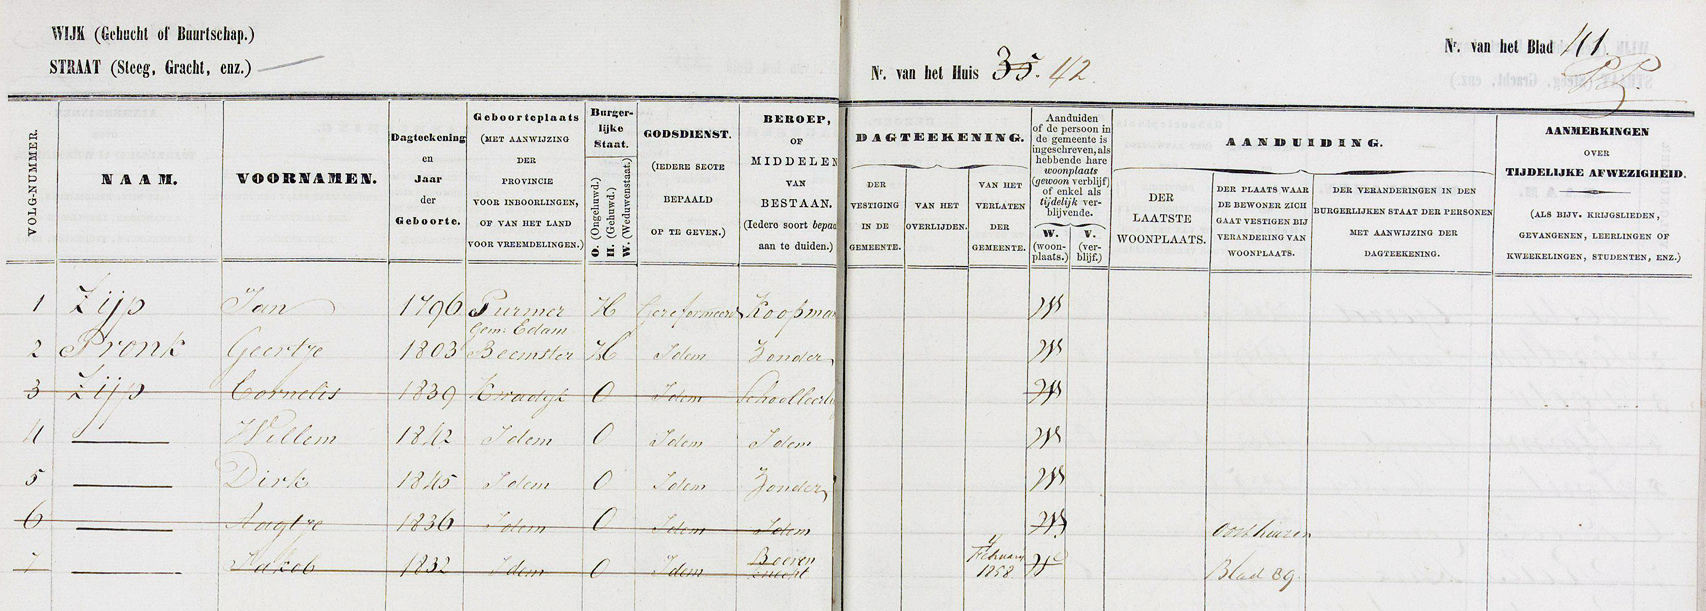 WIJK (Gehucht of Buurtschap.)
STRAAT (Steeg, Gracht, enz.)
Nr. van het Huis 35. 42
Nr. van het Blad 41.
VOLG-NUMMER.
NAAM.
VOORNAMEN.
Dagteekening
en
Jaar
der
Geboorte.
Geboorteplaats
(MET AANWIJZING
DER
PROVINCIE
VOOR INBOORLINGEN,
OF VAN HET LAND
VOOR VREEMDELINGEN.)
Burger-
lijke
Staat.
O. (Ongehuwd.)
H. (Gehuwd.)
W. (Weduwenstaat.)
GODSDIENST.
(IEDERE SECTE
BEPAALD
OP TE GEVEN.)
BEROEP,
OF
MIDDELEN
VAN
BESTAAN.
(Iedere soort bepaa
aan te duiden.)
DAGTEEKENING.
DER
VESTIGING
IN DE
GEMEENTE.
VAN HET
OVERLIJDEN.
VAN HET
VERLATEN
DER
GEMEENTE.
Aanduiden
of de persoon in
de gemeente is
ingeschreven, als
hebbende hare
woonplaats
(gewoon verblijf)
of enkel als
tijdelijk ver-
blijvende.
W.
(woon-
plaats.)
V.
(ver-
blijf.)
AANDUIDING.
DER
LAATSTE
WOONPLAATS.
DER PLAATS WAAR
DE BEWONER ZICH
GAAT VESTIGEN BIJ
VERANDERING VAN
WOONPLAATS.
DER VERANDERINGEN IN DEN
BURGERLIJKEN STAAT DER PERSONEN
MET AANWIJZING DER
DAGTEEKENING.
AANMERKINGEN
OVER
TIJDELIJKE AFWEZIGHEID.
(ALS BIJV. KRIJGSLIEDEN,
GEVANGENEN, LEERLINGEN OF
KWEEKELINGEN, STUDENTEN, ENZ.)
1 Zijp Jan 1796 Purmer Gem: Edam H Gereformeerd Koopman W
2 Pronk Geertje 1803 Beemster H Idem Zonder W
3 Zijp Cornelis 1839 Kwadijk O Idem Schoolleerl W
4 Willem 1842 Idem O Idem Idem W
5 Dirk 1845 Idem O Idem Zonder W
6 Aagtje 1836 Idem O Idem Idem W Oosthuizen
7 Jakob 1832 Idem O Idem Boeren knecht February 1858 W Blad 89.